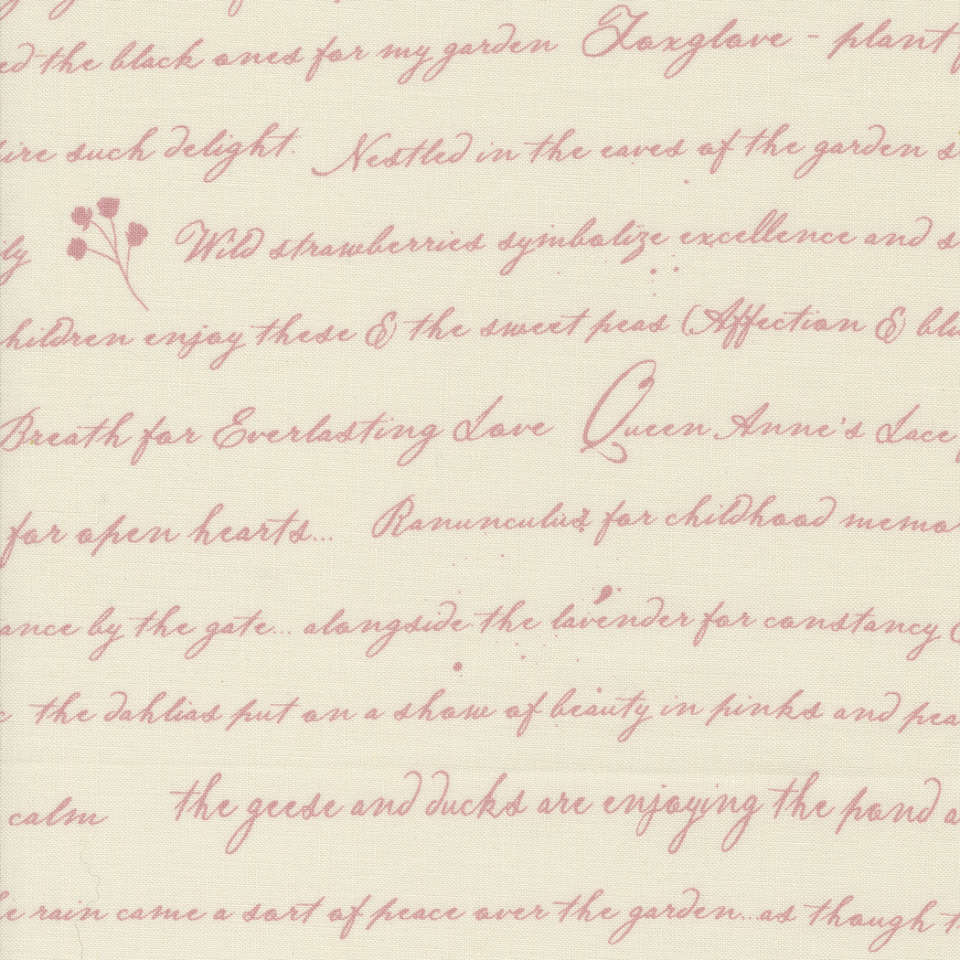 ed the black ones for my garden Foxglove - plant
ire such delight. Nestled in the eaves of the garden s
ly Wild strawberries symbolize excellence and s
hildren enjoy these & the sweet peas (Affection & blu
Breath for Everlasting Love Queen Anne's Lace
for open hearts... Ranunculus for childhood memo
ance by the gate... alongside the lavender for constancy &
the dahlias put on a show of beauty in pinks and pea
calm the geese and ducks are enjoying the pond a
e rain came a sort of peace over the garden...as though t